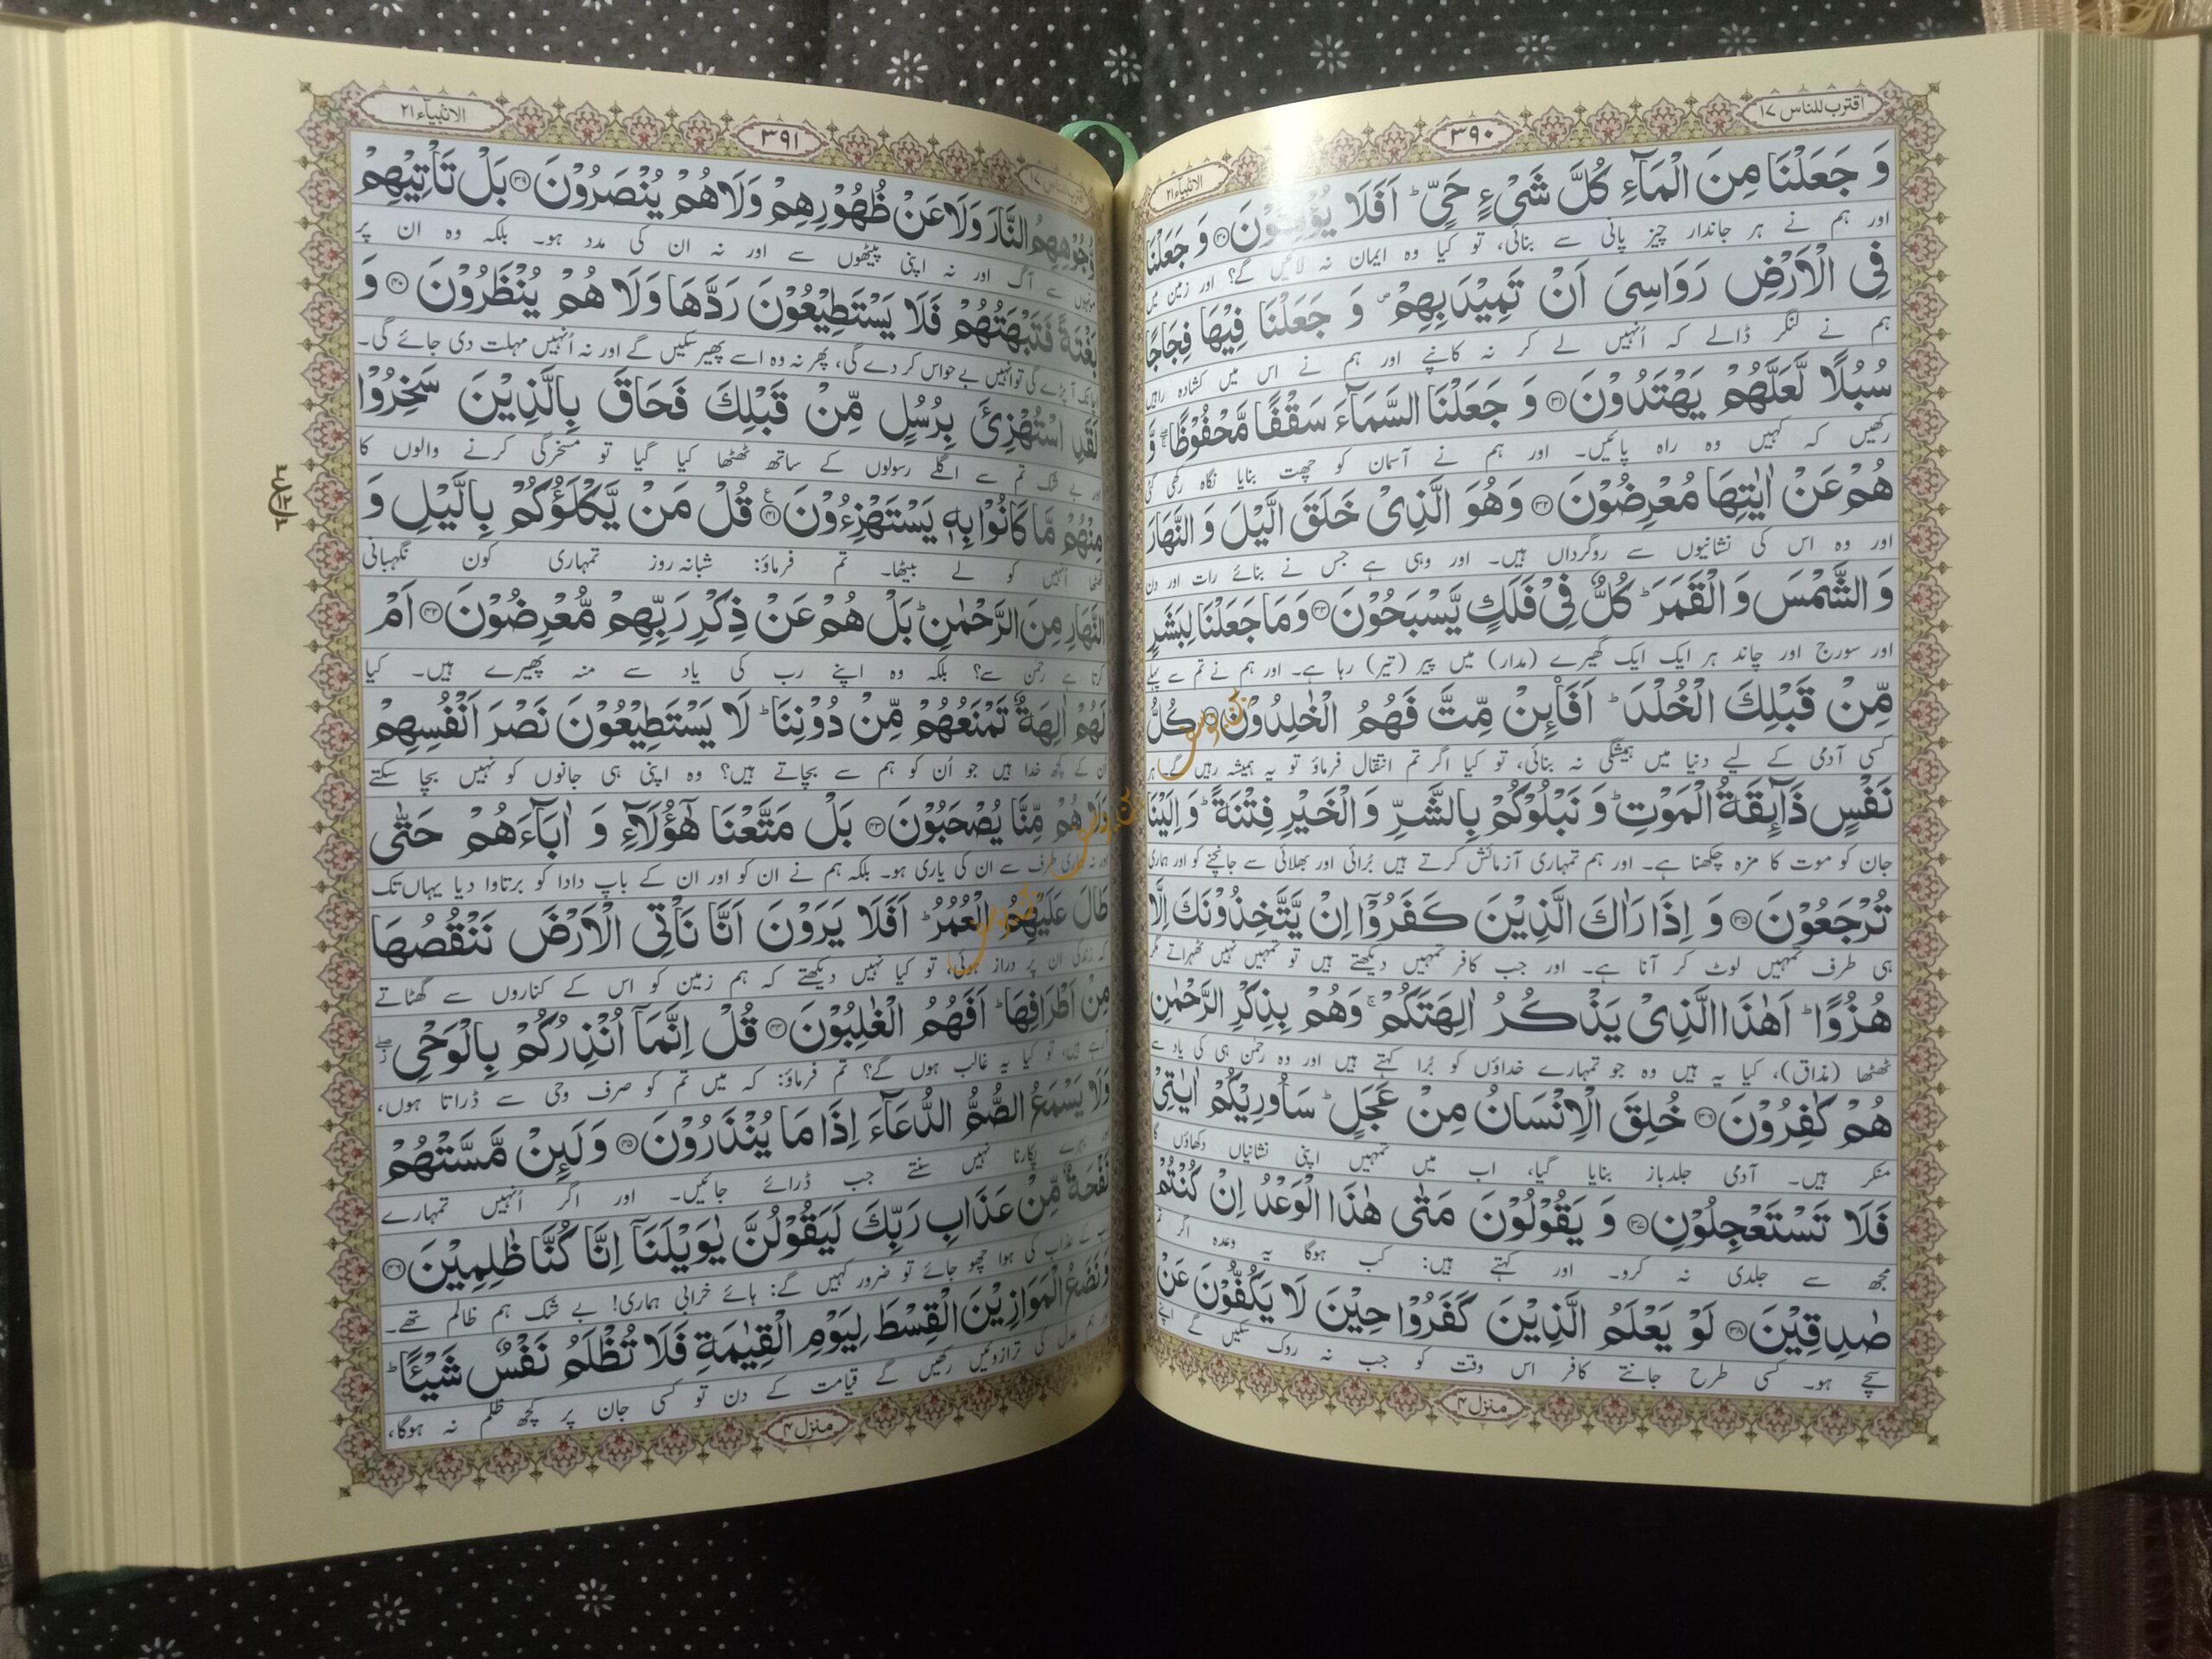 اقترب للناس ١٧
٣٩٠
الانبیآء ٢١
وَ جَعَلْنَا مِنَ الْمَآءِ كُلَّ شَیْءٍ حَیٍّؕ اَفَلَا یُؤْمِنُوْنَ۝۳۰ وَ جَعَلْنَا
اور ہم نے ہر جاندار چیز پانی سے بنائی، تو کیا وہ ایمان نہ لائیں گے؟ اور زمین میں
فِی الْاَرْضِ رَوَاسِیَ اَنْ تَمِیْدَ بِهِمْ۪ وَ جَعَلْنَا فِیْهَا فِجَاجًا
ہم نے لنگر ڈالے کہ اُنہیں لے کر نہ کانپے اور ہم نے اس میں کشادہ راہیں
سُبُلًا لَّعَلَّهُمْ یَهْتَدُوْنَ۝۳۱ وَ جَعَلْنَا السَّمَآءَ سَقْفًا مَّحْفُوْظًا ۖۚ وَّ
رکھیں کہ کہیں وہ راہ پائیں۔ اور ہم نے آسمان کو چھت بنایا نگاہ رکھی گئی
هُمْ عَنْ اٰیٰتِهَا مُعْرِضُوْنَ۝۳۲ وَهُوَ الَّذِیْ خَلَقَ الَّیْلَ وَ النَّهَارَ
اور وہ اس کی نشانیوں سے روگرداں ہیں۔ اور وہی ہے جس نے بنائے رات اور دن
وَ الشَّمْسَ وَ الْقَمَرَؕ كُلٌّ فِیْ فَلَكٍ یَّسْبَحُوْنَ۝۳۳ وَ مَا جَعَلْنَا لِبَشَرٍ
اور سورج اور چاند ہر ایک ایک گھیرے (مدار) میں پیر (تیر) رہا ہے۔ اور ہم نے تم سے پہلے
مِّنْ قَبْلِكَ الْخُلْدَؕ اَفَاۡىِٕنْ مِّتَّ فَهُمُ الْخٰلِدُوْنَ۝ كُلُّ
کسی آدمی کے لیے دنیا میں ہمیشگی نہ بنائی، تو کیا اگر تم انتقال فرماؤ تو یہ ہمیشہ رہیں گے۔ ہر
نَفْسٍ ذَآىِٕقَةُ الْمَوْتِؕ وَ نَبْلُوْكُمْ بِالشَّرِّ وَ الْخَیْرِ فِتْنَةًؕ وَ اِلَیْنَا
جان کو موت کا مزہ چکھنا ہے۔ اور ہم تمہاری آزمائش کرتے ہیں بُرائی اور بھلائی سے جانچنے کو اور ہماری
تُرْجَعُوْنَ۝۳۵ وَ اِذَا رَاٰكَ الَّذِیْنَ كَفَرُوْۤا اِنْ یَّتَّخِذُوْنَكَ اِلَّا
ہی طرف تمہیں لوٹ کر آنا ہے۔ اور جب کافر تمہیں دیکھتے ہیں تو تمہیں نہیں ٹھہراتے مگر
هُزُوًاؕ اَهٰذَا الَّذِیْ یَذْكُرُ اٰلِهَتَكُمْۚ وَهُمْ بِذِكْرِ الرَّحْمٰنِ
ٹھٹھا (مذاق)، کیا یہ ہیں وہ جو تمہارے خداؤں کو بُرا کہتے ہیں اور وہ رحمٰن ہی کی یاد سے
هُمْ كٰفِرُوْنَ۝۳۶ خُلِقَ الْاِنْسَانُ مِنْ عَجَلٍؕ سَاُورِیْكُمْ اٰیٰتِیْ
منکر ہیں۔ آدمی جلدباز بنایا گیا، اب میں تمہیں اپنی نشانیاں دکھاؤں گا
فَلَا تَسْتَعْجِلُوْنِ۝۳۷ وَ یَقُوْلُوْنَ مَتٰی هٰذَا الْوَعْدُ اِنْ كُنْتُمْ
مجھ سے جلدی نہ کرو۔ اور کہتے ہیں: کب ہوگا یہ وعدہ اگر تم
صٰدِقِیْنَ۝۳۸ لَوْ یَعْلَمُ الَّذِیْنَ كَفَرُوْا حِیْنَ لَا یَكُفُّوْنَ عَنْ
سچے ہو۔ کسی طرح جانتے کافر اس وقت کو جب نہ روک سکیں گے اپنے
منزل ۴
اقترب للناس ١٧
٣٩١
الانبیآء ٢١
وُّجُوْهِهِمُ النَّارَ وَلَا عَنْ ظُهُوْرِهِمْ وَلَا هُمْ یُنْصَرُوْنَ۝۳۹ بَلْ تَاْتِیْهِمْ
سے آگ اور نہ اپنی پیٹھوں سے اور نہ ان کی مدد ہو۔ بلکہ وہ ان پر
بَغْتَةً فَتَبْهَتُهُمْ فَلَا یَسْتَطِیْعُوْنَ رَدَّهَا وَلَا هُمْ یُنْظَرُوْنَ۝۴۰ وَ
اچانک آ پڑے گی تو انہیں بے حواس کر دے گی، پھر نہ وہ اسے پھیر سکیں گے اور نہ اُنہیں مہلت دی جائے گی۔
لَقَدِ اسْتُهْزِئَ بِرُسُلٍ مِّنْ قَبْلِكَ فَحَاقَ بِالَّذِیْنَ سَخِرُوْا
اور بے شک تم سے اگلے رسولوں کے ساتھ ٹھٹھا کیا گیا تو مسخرگی کرنے والوں کا
مِنْهُمْ مَّا كَانُوْا بِهٖ یَسْتَهْزِءُوْنَ۝۴۱ قُلْ مَنْ یَّكْلَؤُكُمْ بِالَّیْلِ وَ
ٹھٹھا اُنہیں کو لے بیٹھا۔ تم فرماؤ: شبانہ روز تمہاری کون نگہبانی
النَّهَارِ مِنَ الرَّحْمٰنِؕ بَلْ هُمْ عَنْ ذِكْرِ رَبِّهِمْ مُّعْرِضُوْنَ۝۴۲ اَمْ
کرتا ہے رحمٰن سے؟ بلکہ وہ اپنے رب کی یاد سے منہ پھیرے ہیں۔ کیا
لَهُمْ اٰلِهَةٌ تَمْنَعُهُمْ مِّنْ دُوْنِنَاؕ لَا یَسْتَطِیْعُوْنَ نَصْرَ اَنْفُسِهِمْ
ان کے کچھ خدا ہیں جو اُن کو ہم سے بچاتے ہیں؟ وہ اپنی ہی جانوں کو نہیں بچا سکتے
وَلَا هُمْ مِّنَّا یُصْحَبُوْنَ۝۴۳ بَلْ مَتَّعْنَا هٰۤؤُلَآءِ وَ اٰبَآءَهُمْ حَتّٰی
اور نہ ہماری طرف سے ان کی یاری ہو۔ بلکہ ہم نے ان کو اور ان کے باپ دادا کو برتاوا دیا یہاں تک
طَالَ عَلَیْهِمُ الْعُمُرُؕ اَفَلَا یَرَوْنَ اَنَّا نَاْتِی الْاَرْضَ نَنْقُصُهَا
کہ زندگی ان پر دراز ہوئی، تو کیا نہیں دیکھتے کہ ہم زمین کو اس کے کناروں سے گھٹاتے
مِنْ اَطْرَافِهَاؕ اَفَهُمُ الْغٰلِبُوْنَ۝۴۴ قُلْ اِنَّمَاۤ اُنْذِرُكُمْ بِالْوَحْیِ ۖؗ
آرہے ہیں، تو کیا یہ غالب ہوں گے؟ تم فرماؤ: کہ میں تم کو صرف وحی سے ڈراتا ہوں،
وَلَا یَسْمَعُ الصُّمُّ الدُّعَآءَ اِذَا مَا یُنْذَرُوْنَ۝۴۵ وَلَىِٕنْ مَّسَّتْهُمْ
اور بہرے پکارنا نہیں سنتے جب ڈرائے جائیں۔ اور اگر اُنہیں تمہارے
نَفْحَةٌ مِّنْ عَذَابِ رَبِّكَ لَیَقُوْلُنَّ یٰوَیْلَنَاۤ اِنَّا كُنَّا ظٰلِمِیْنَ۝۴۶
رب کے عذاب کی ہوا چھو جائے تو ضرور کہیں گے: ہائے خرابی ہماری! بے شک ہم ظالم تھے۔
وَنَضَعُ الْمَوَازِیْنَ الْقِسْطَ لِیَوْمِ الْقِیٰمَةِ فَلَا تُظْلَمُ نَفْسٌ شَیْـًٔاؕ
اور ہم عدل کی ترازوئیں رکھیں گے قیامت کے دن تو کسی جان پر کچھ ظلم نہ ہوگا،
منزل ۴